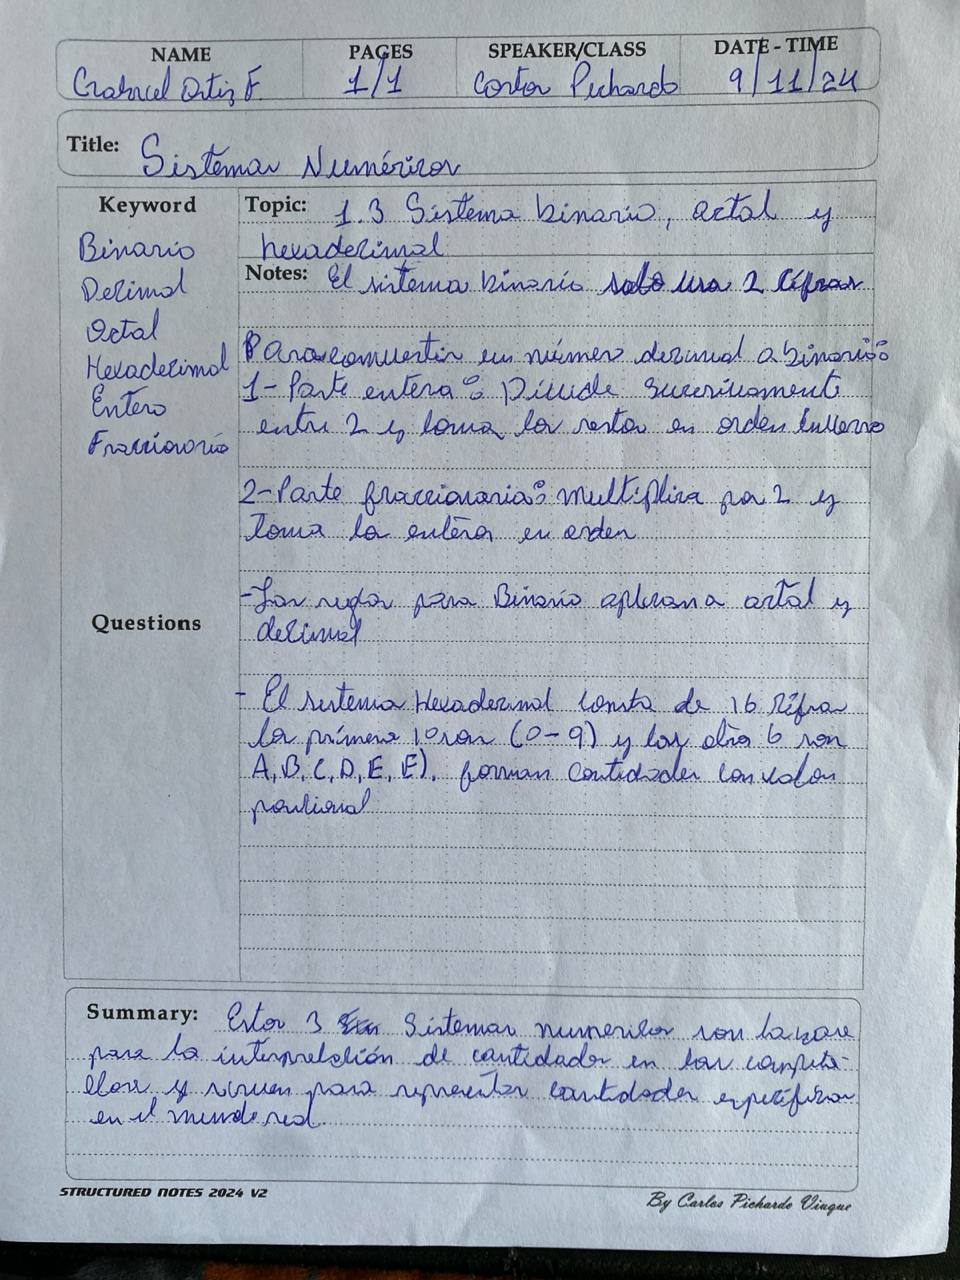 NAME PAGES SPEAKER/CLASS DATE - TIME
Gabriel Ortiz F. 1/1 Pichardo 9/11/24
Title: Sistemas Numéricos
Keyword
Binario
Decimal
Octal
Hexadecimal
Entero
Fraccionario
Questions
Topic: 1.3 Sistema binario, octal y
hexadecimal
Notes: El sistema binario solo usa 2 cifras
Para convertir un número decimal a binario:
1- Parte entera: Divide sucesivamente
entre 2 y toma los restos en orden inverso
2- Parte fraccionaria: multiplica por 2 y
toma la entera en orden
- Las reglas para Binario aplican a octal y
decimal
- El sistema Hexadecimal consta de 16 cifras
las primera 10 son (0-9) y las otra 6 son
A, B, C, D, E, E). forman cantidades con valor
posicional
Summary: Estos 3 Sistemas numericos son la base
para la interpretación de cantidades en las computa-
doras y sirven para representar cantidades especificas
en el mundo real.
STRUCTURED NOTES 2024 V2
By Carlos Pichardo Viuque